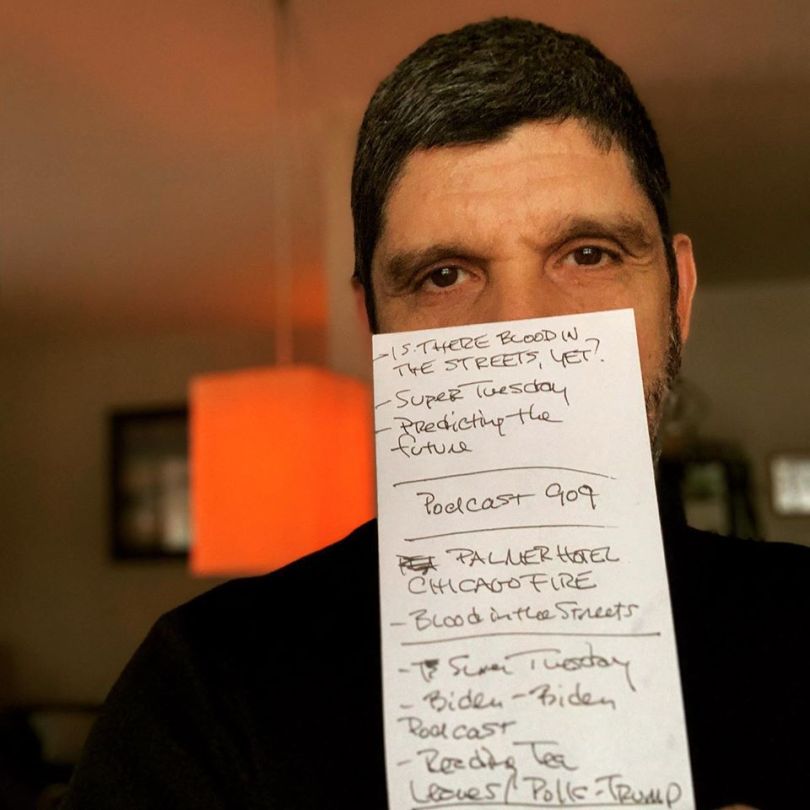 - IS THERE BLOOD IN
THE STREETS, YET?
- SUPER TUESDAY
- Predicting the
future
Podcast 909
PALMER HOTEL
CHICAGO FIRE
- Blood in the Streets
- Super Tuesday
- Biden - Biden
Podcast
- Reading Tea
Leaves / Polls - TRUMP